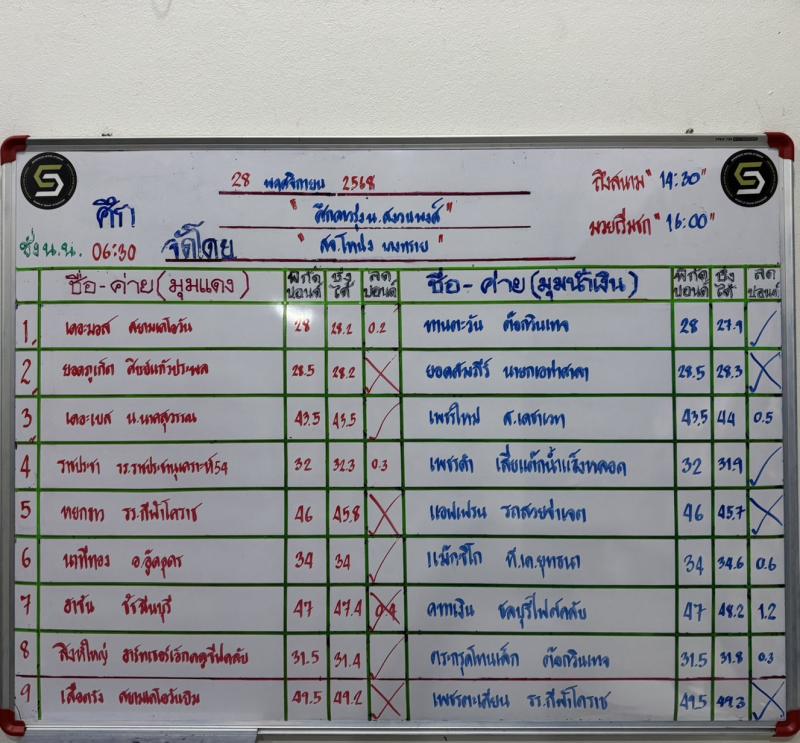 28 พฤศจิกายน 2568
ศึก
"ศึกดาวรุ่ง น.สงวนพงศ์"
ถึงสนาม "14:30"
ชั่ง น.น. 06:30
จัดโดย
มวยเริ่มชก "16:00"
ชื่อ-ค่าย (มุมแดง) พิกัด ปอนด์ ชั่งได้ ลด ปอนด์ ชื่อ-ค่าย (มุมน้ำเงิน) พิกัด ปอนด์ ชั่งได้ ลด ปอนด์
1. เดอะมอส สยามเคโอวัน 28 28.2 0.2 ทานตะวัน ต๊อกวินเทจ 28 27.9
2. ยอดภูเก็ต ศิษย์แก้วประพล 28.5 28.2 28.5 28.3
3. เดอะเบส น.นาคสุวรรณ 43.5 43.5 เพชรใหม่ ส.เดชาเวทา 43.5 44 0.5
4 ราชประชา รร.ราชประชานุเคราะห์54 32 32.3 0.3 เพชรดำ 32 31.9
5 หยกขาว รร.กีฬาโคราช 46 45.8 แอฟเฟรน รถสวยขำเจต 46 45.7
6 นาทีทอง อ.อู๊ดอุดร 34 34 แม็กซิโก ที.เค.ยุทธนา 34 34.6 0.6
7 ฮาซัน ชัชมีนบุรี 47 47.4 0.4 ดาบเงิน ชลบุรีไฟท์คลับ 47 48.2 1.2
8 สิงห์ใหญ่ 31.5 31.4 ตระกรุดโทนเล็ก ต๊อกวินเทจ 31.5 31.8 0.3
9 สยามเคโอวันยิม 49.5 49.2 เพชรตะเคียน รร.กีฬาโคราช 49.5 49.3